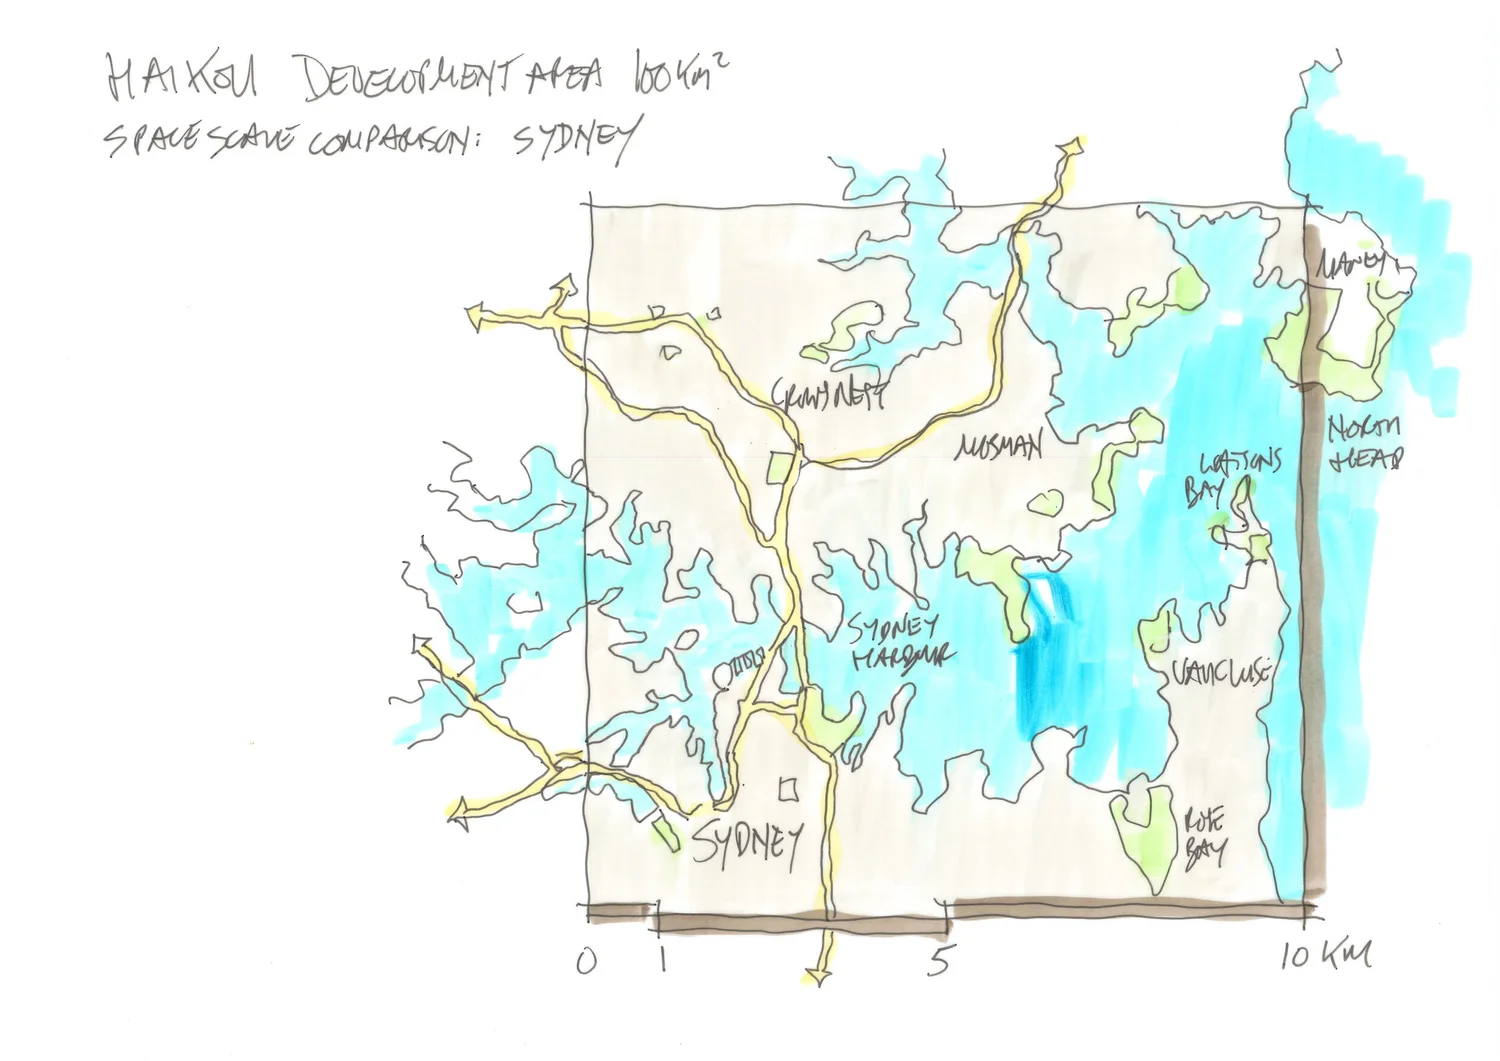 HAIKOU DEVELOPMENT AREA 100 Km²
SPACE SCALE COMPARISON: SYDNEY
MANLY
CROWS NEST
MOSMAN
NORTH
HEAD
WATSONS
BAY
SYDNEY
HARBOUR
VAUCLUSE
SYDNEY
ROSE
BAY
0 1 5 10 KM